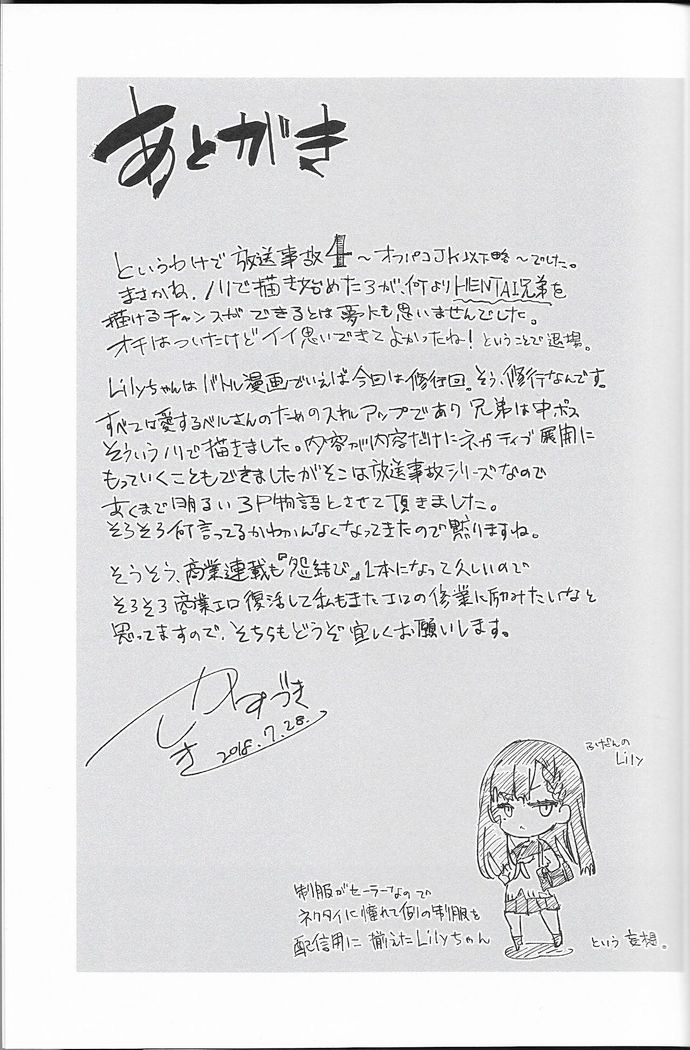 あとがき
というわけで放送事故4～オフパコJK以下略～でした。
まさかね、ノリで描き始めた3が、何よりHENTAI兄弟を
描けるチャンスができるとは夢にも思いませんでした。
オチはついたけどイイ思いできてよかったね！ということで退場。
Lilyちゃんはバトル漫画でいえば今回は修行回。そう、修行なんです。
すべては愛するベルさんのためのスキルアップであり兄弟は中ボス
そういうノリで描きました。内容が内容だけにネガティブ展開に
もっていくこともできましたがそこは放送事故シリーズなので
あくまで明るい3P物語とさせて頂きました。
そろそろ何言ってるかわかんなくなってきたので黙りますね。
そうそう、商業連載も『怨結び』1本になって久しいので
そろそろ商業エロ復活して私もまたエロの修業に励みたいなと
思ってますので、そちらもどうぞ宜しくお願いします。
かずづき
しき
2018.7.28.
ふだんの
Lily
制服がセーラーなので
ネクタイに憧れて例の制服を
配信用に揃えたLilyちゃん
という妄想。